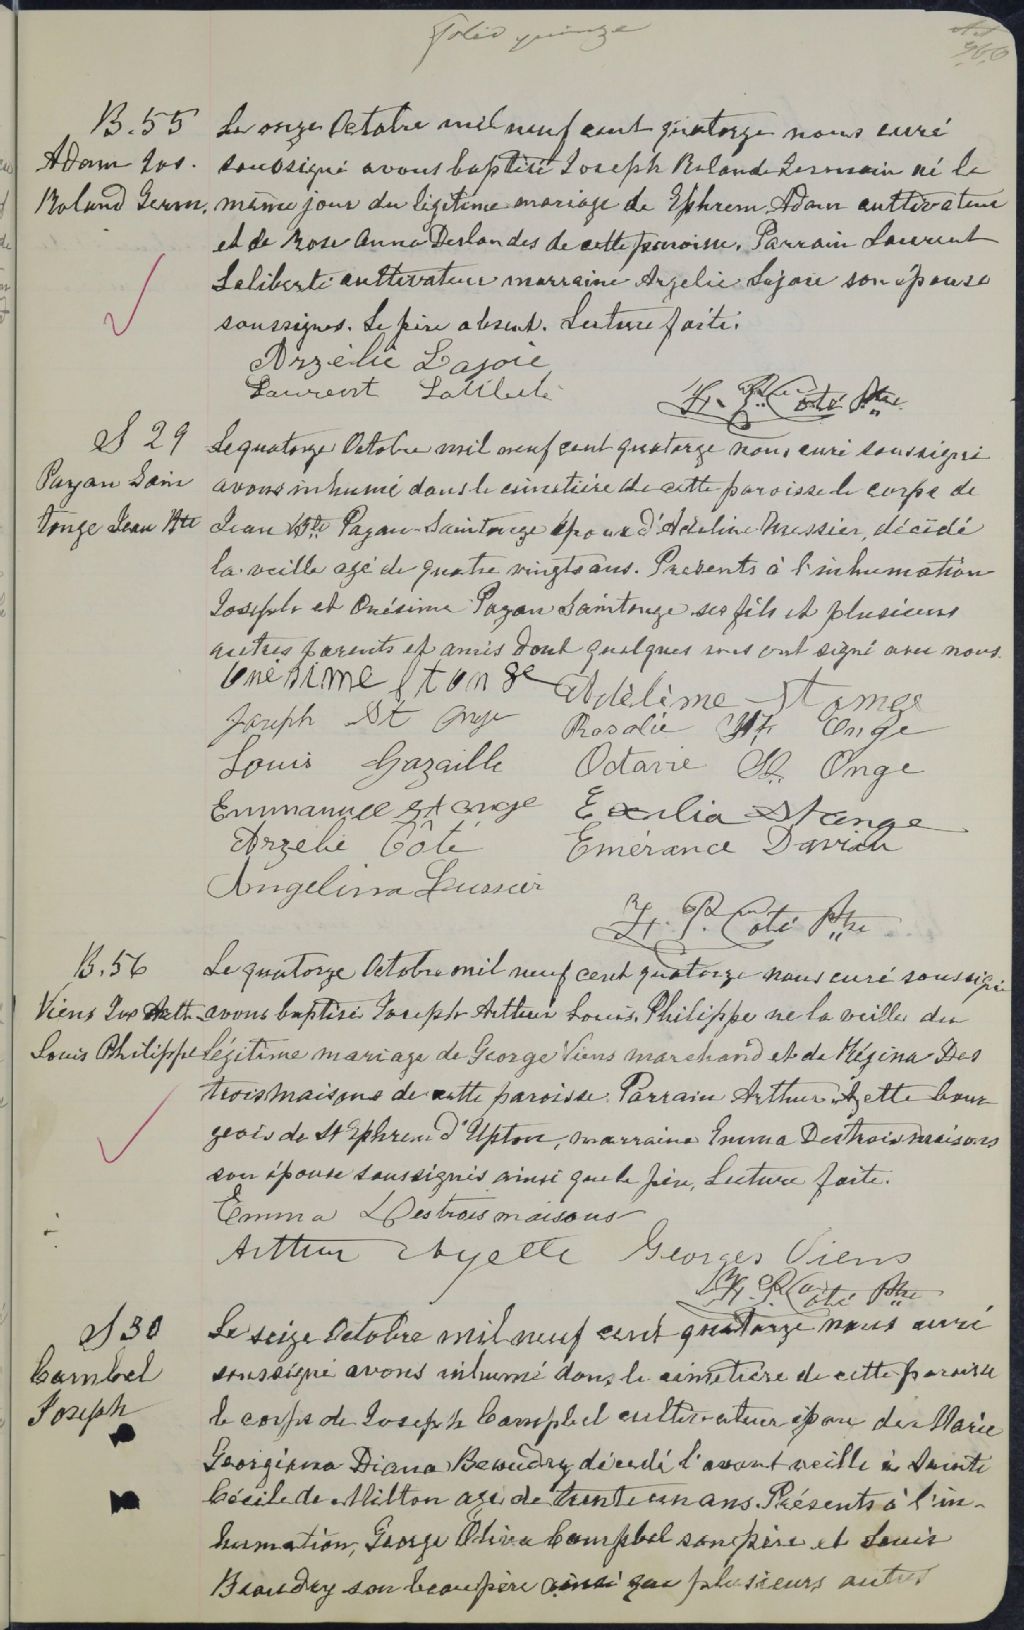 Folio quinze
B. 55
Adam Jos.
Roland Germ.
Le onze Octobre mil neuf cent quatorze nous curé
soussigné avons baptisé Joseph Roland Germain né le
même jour du légitime mariage de Ephrem Adam cultivateur
et de Rose Anna Deslandes de cette paroisse. Parrain Laurent
Laliberté cultivateur marraine Arzelie Lajoie son épouse
soussignés. Le père absent. Lecture faite.
Arzélie Lajoie
Laurent Laliberté
Côté Ptre
S 29
Payan Sain
tonge Jean Bte
Le quatorze Octobre mil neuf cent quatorze nous curé soussigné
avons inhumé dans le cimetière de cette paroisse le corps de
Jean Bte Payan Saintonge époux d'Adeline Messier, décédé
la veille agé de quatre vingts ans. Présents à l'inhumation
Joseph et Onésime Payan Saintonge ses fils et plusieurs
autres parents et amis dont quelques uns ont signé avec nous.
Onésime Stonge Adélime Stonge
Joseph St Onge Rosalie St Onge
Louis Gazaille Octavie St. Onge
Emmanuel St onge Exilia Stonge
Arzelie Côté Emérance Davian
Angelina Lussier
Côté Ptre
B. 56
Viens Jos Arth.
Louis Philippe
Le quatorze Octobre mil neuf cent quatorze nous curé soussigné
avons baptisé Joseph Arthur Louis Philippe né la veille du
légitime mariage de George Viens marchand et de Régina Des
troismaisons de cette paroisse. Parrain Arthur Ayette bour
geois de St Ephrem d'Upton, marraine Emma Destroismaisons
son épouse soussignés ainsi que le père, Lecture faite.
Emma Destroismaisons
Arthur Ayette Georges Viens
Côté Ptre
S 30
Cambel
Joseph
Le seize Octobre mil neuf cent quatorze nous curé
soussigné avons inhumé dans le cimetière de cette paroisse
le corps de Joseph Campbel cultivateur époux de Marie
Georgianna Diana Beaudry décédé l'avant veille à Sainte
Cécile de Milton agé de trente un ans. Présents à l'in-
humation, George Oliva Campbel son père et Louis
Beaudry son beau père ainsi que plusieurs autres